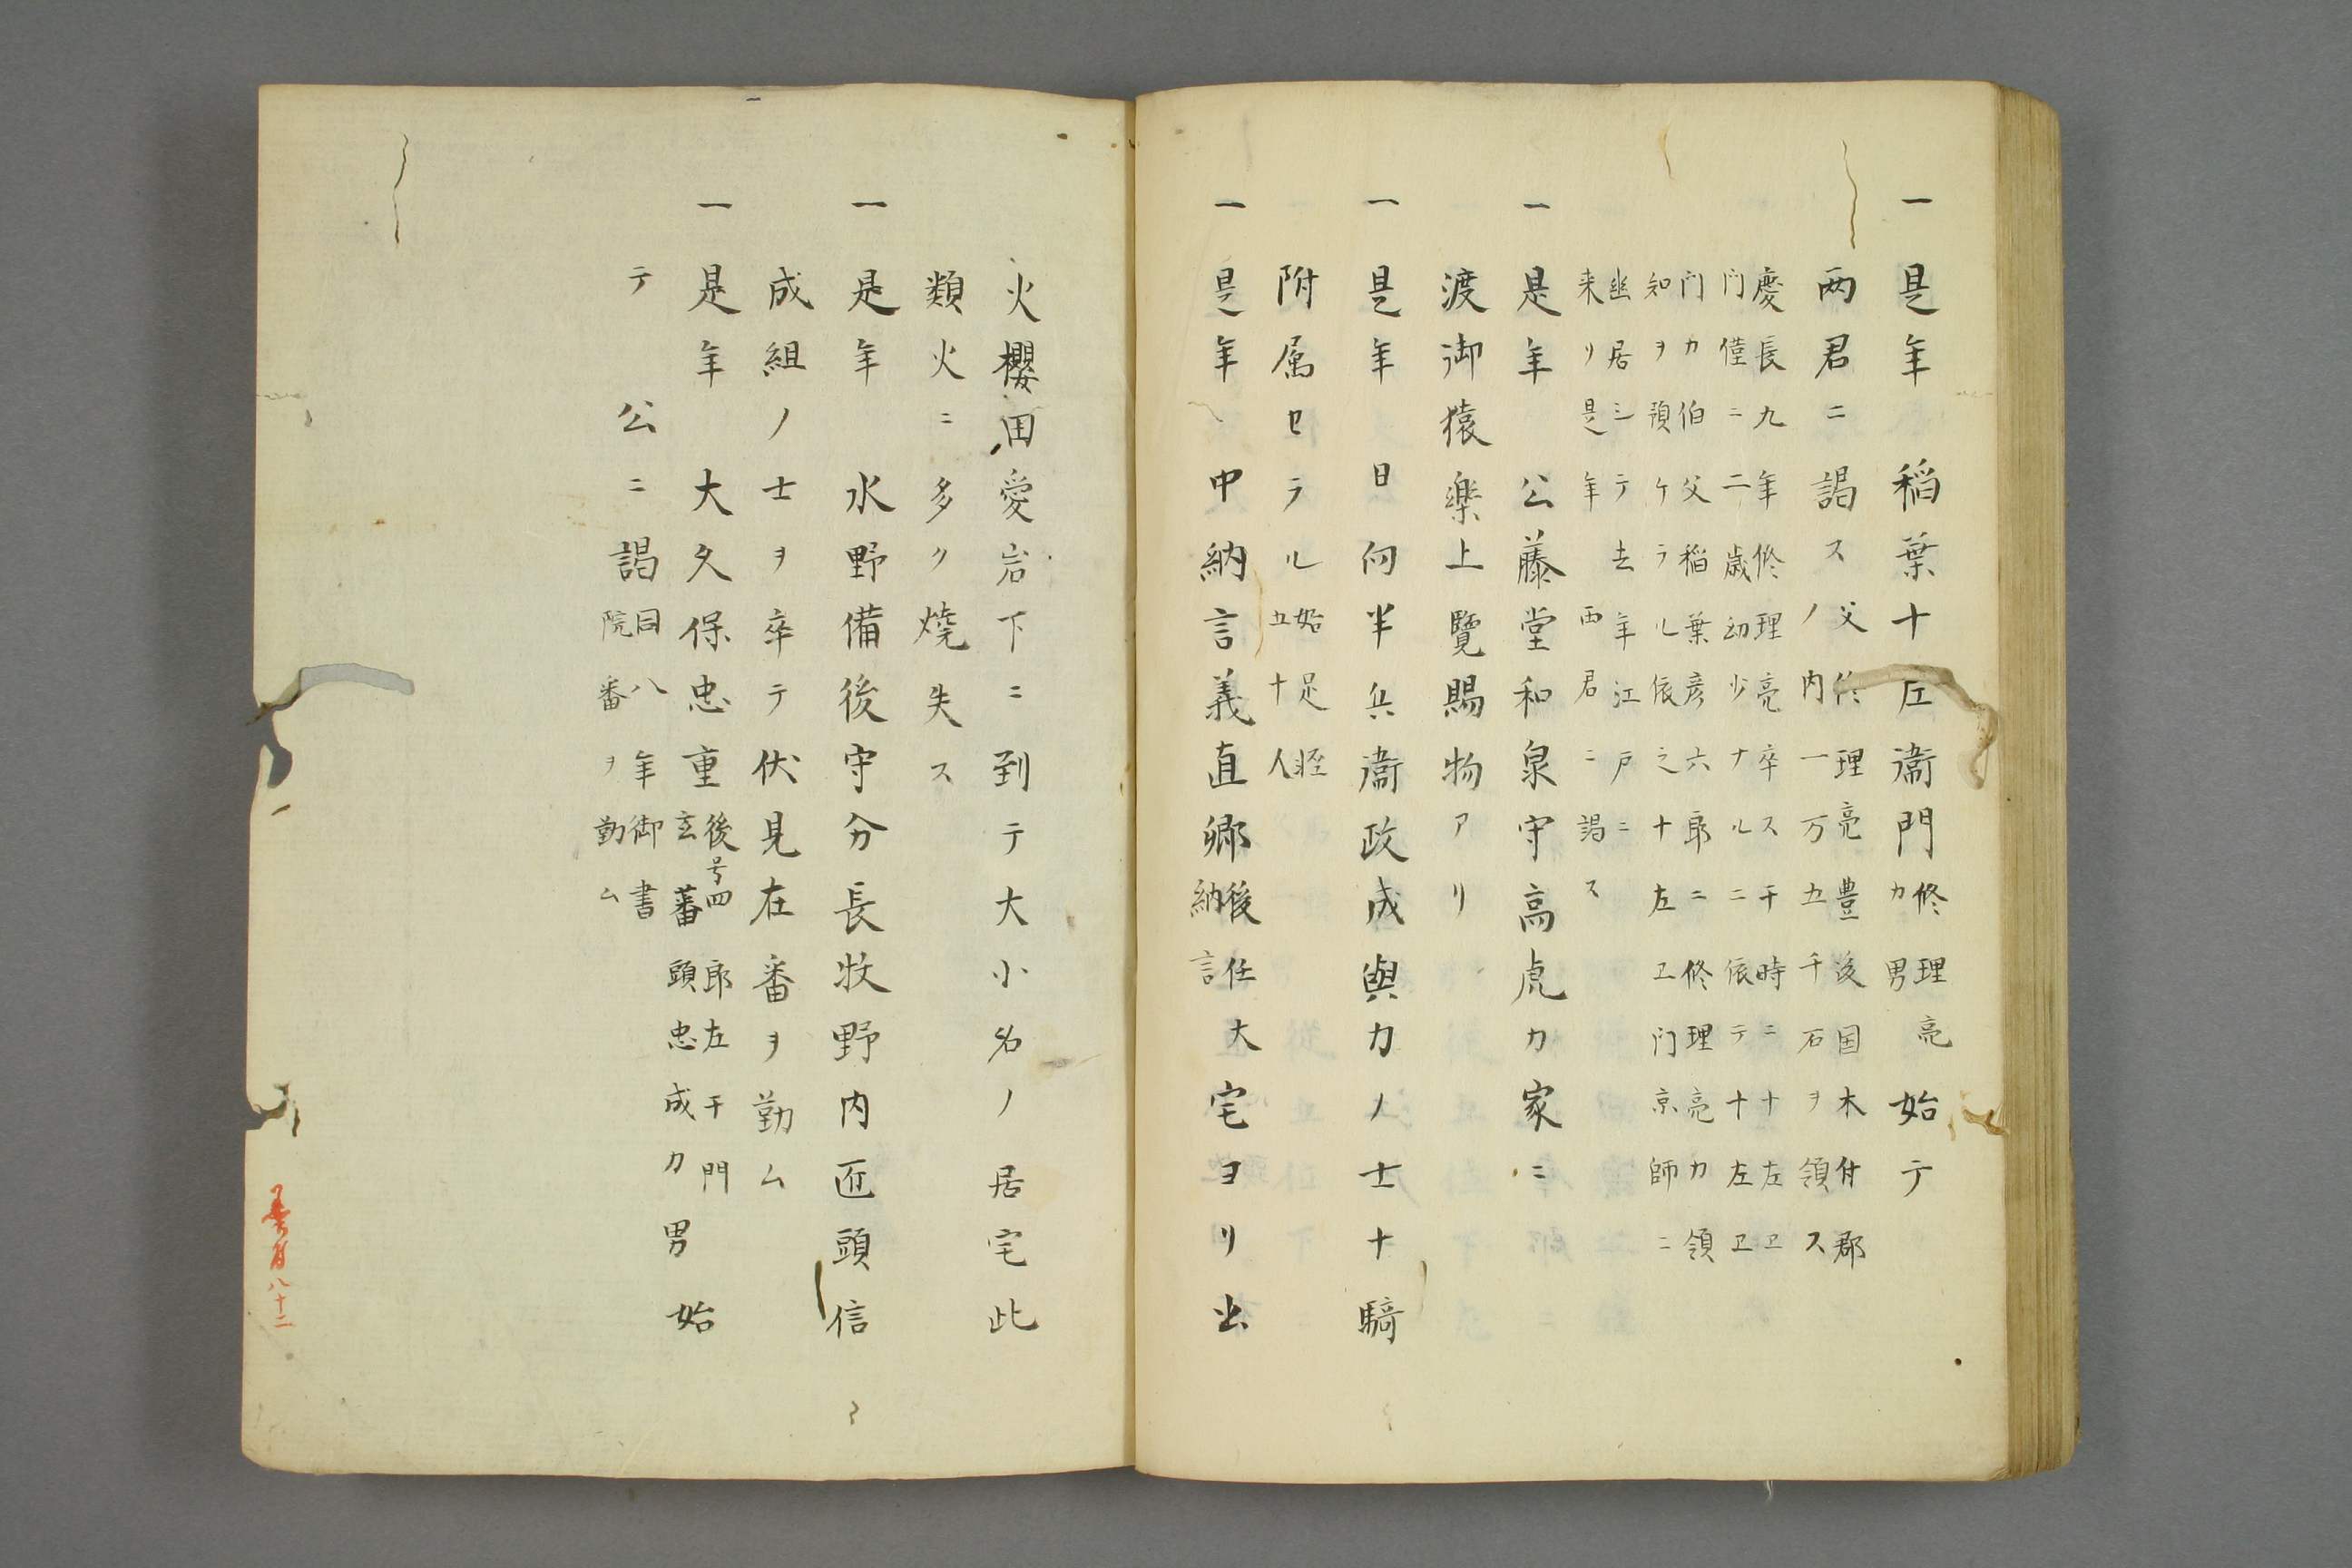 一是年 稲葉十左衞門修理亮
カ男始テ
両君ニ謁ス父修理亮豊後国木付郡
ノ内一万五千石ヲ領ス
慶長九年修理亮卒ス于時ニ十左卫
门僅ニ二歳幼少ナルニ依テ十左卫
门カ伯父稲葉彦六郎ニ修理亮カ領
知ヲ預ケラル依之十左卫门京師ニ
幽居シテ去年江戸ニ
来リ是年両君ニ謁ス
一是年 公藤堂和泉守高虎カ家ニ
渡御猿楽上覽賜物アリ
一是年 日向半兵衞政成與力ノ士十騎
附属セラル始足軽
五十人
一是年 中納言義直郷後任大
納言宅ヨリ出
火櫻田愛宕下ニ到テ大小名ノ居宅此
類火ニ多ク燒失ス
一是年 水野備後守分長牧野内匠頭信
成組ノ士ヲ卒テ伏見在番ヲ勤ム
一是年 大久保忠重後号四郎左于門
玄蕃頭忠成カ男始
テ 公ニ謁同八年御書
院番ヲ勤ム
八十二